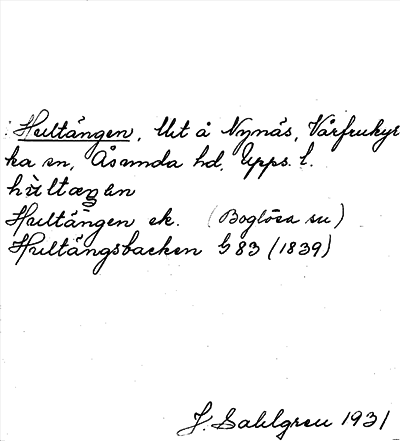 Hultängen, Ut å Nynäs, Vårfrukyr
ka sn, Åsunda hd, Upps. l.
hùltæŋən
Hultängen ek. (Boglösa sn)
Hultängsbacken G 83 (1839)
J. Sahlgren 1931